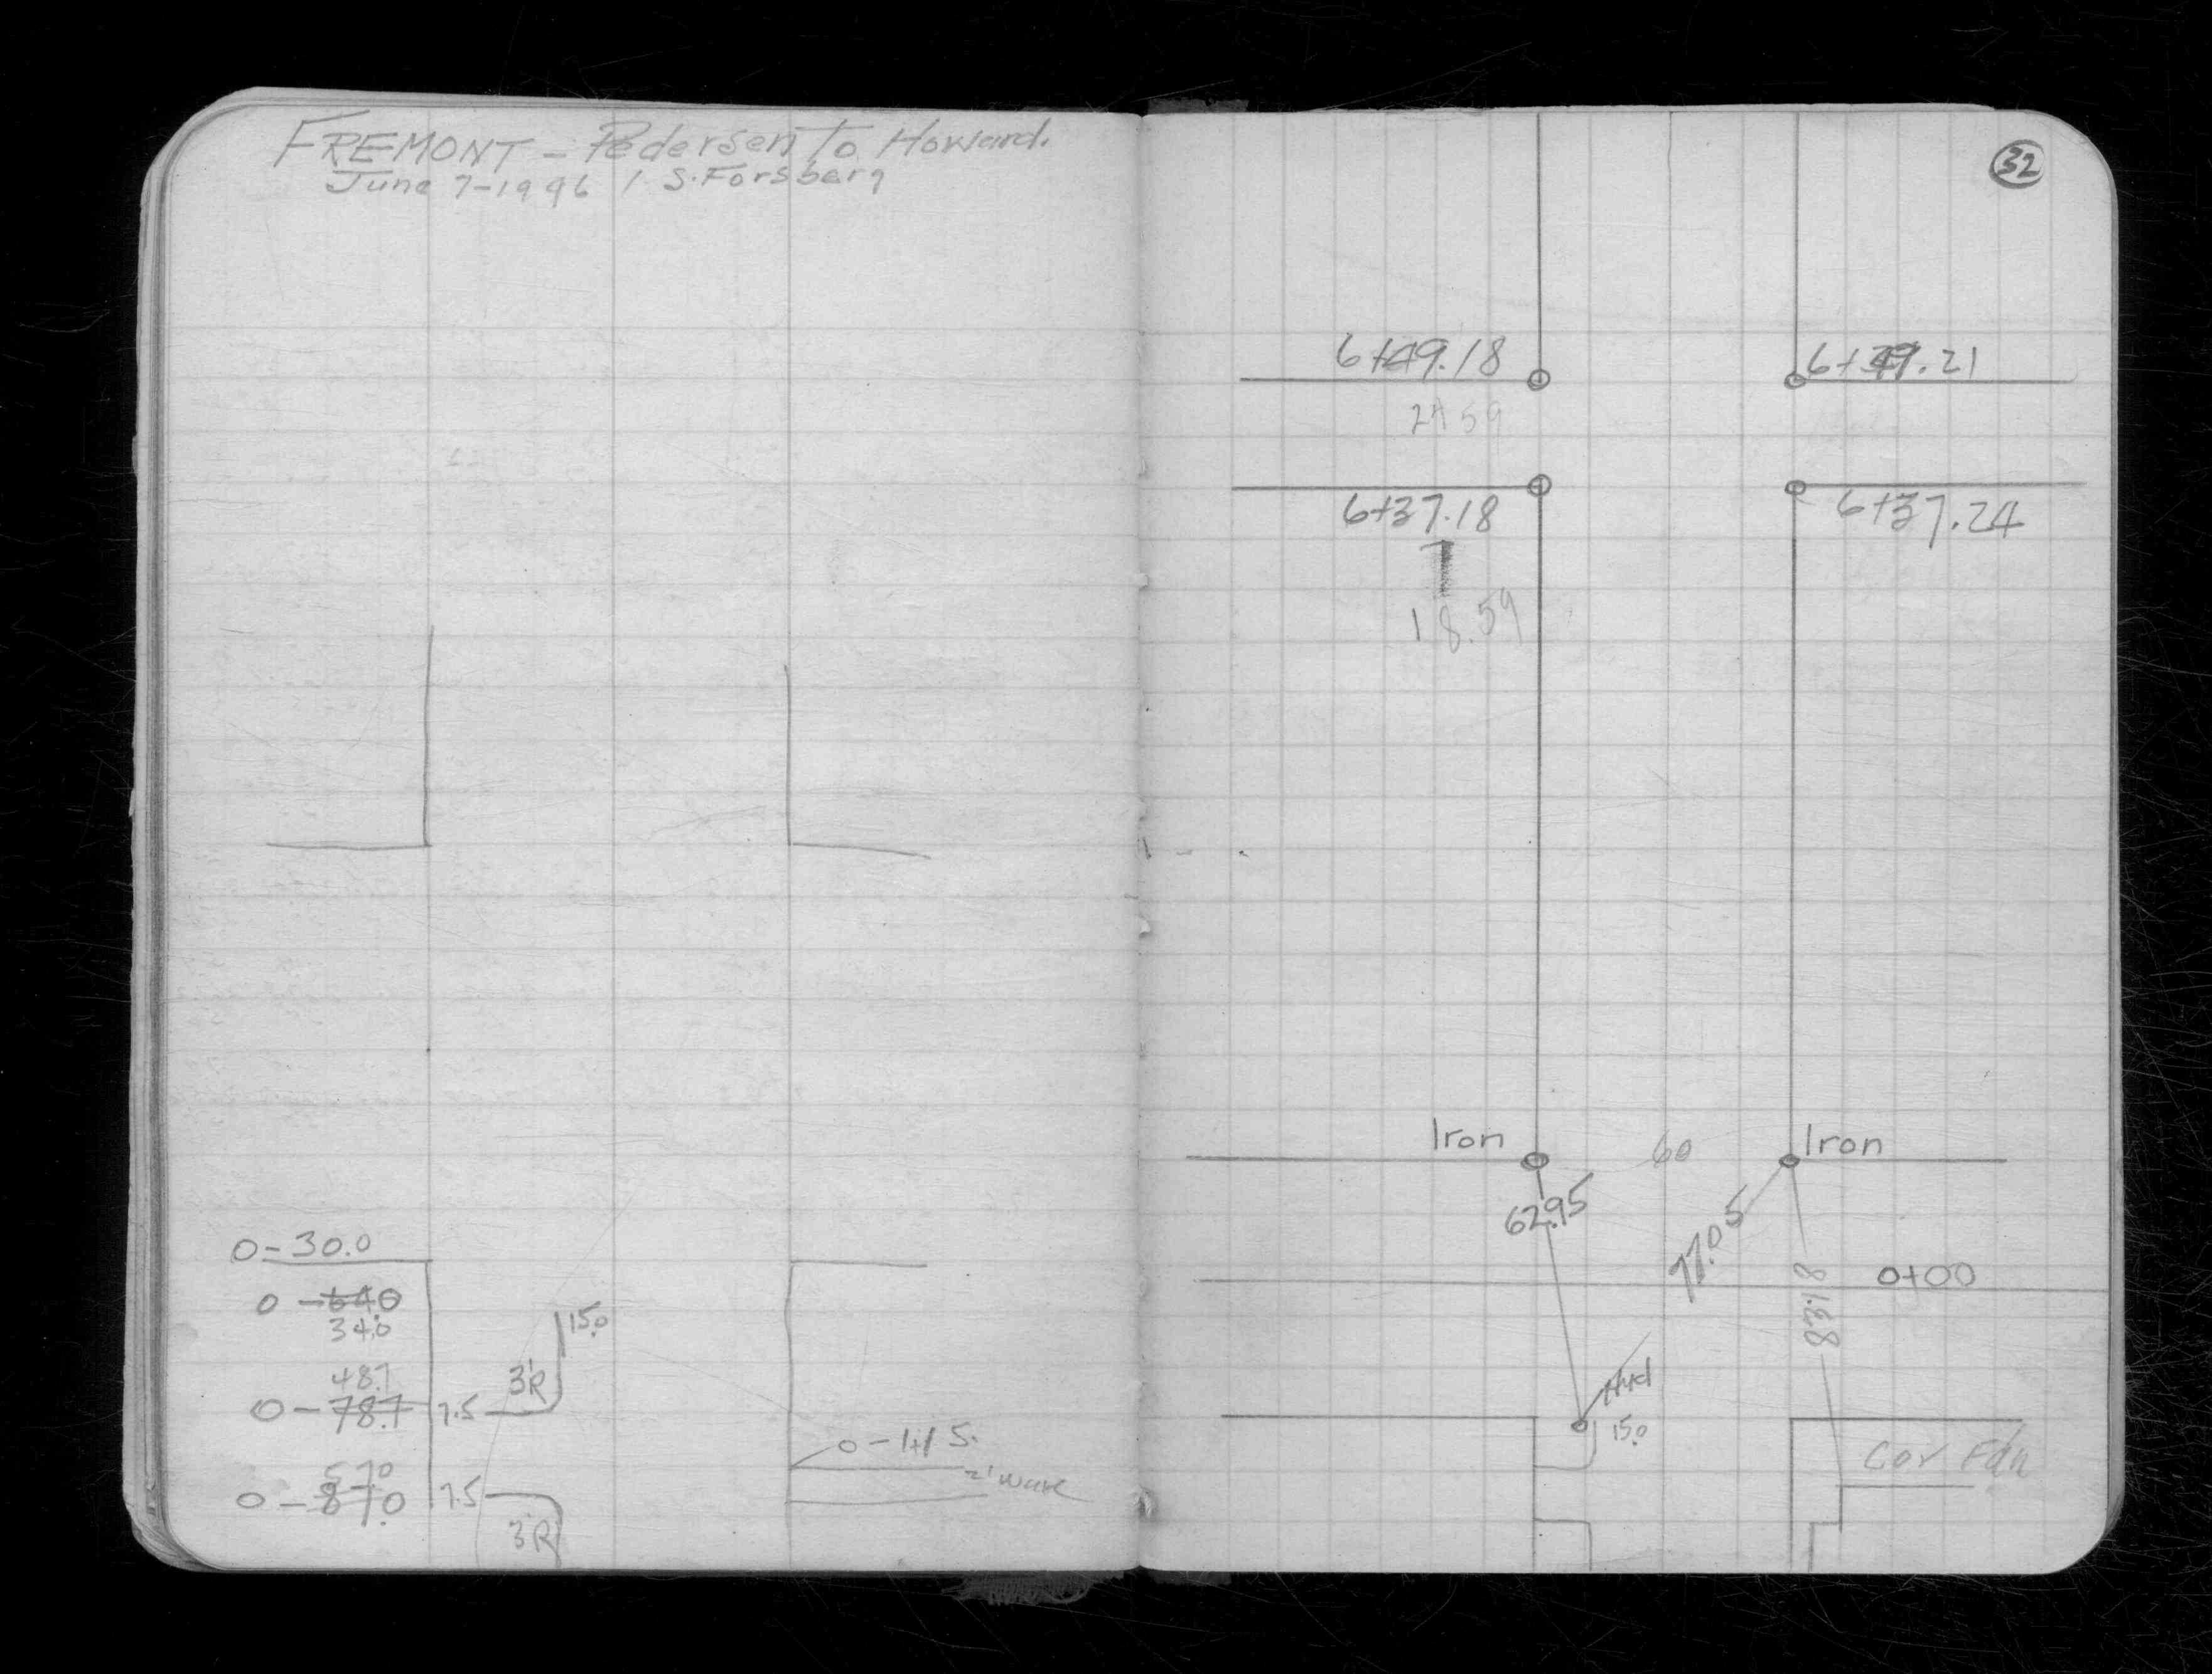 FREMONT - Pedersen To Howard.
June 7-1996 / S. Forsberg
0-30.0
0-64.0
34.0
15.0
48.7
3'R
0-78.7
7.5
57.0
0-87.0
7.5
3'R
0-41 S.
32
6+49.18
6+49.21
24 59
6+37.18
6+37.24
18.59
Iron
60
Iron
62.95
77.05
83.18
0+00
Hyd
15.0
Cor Fdn